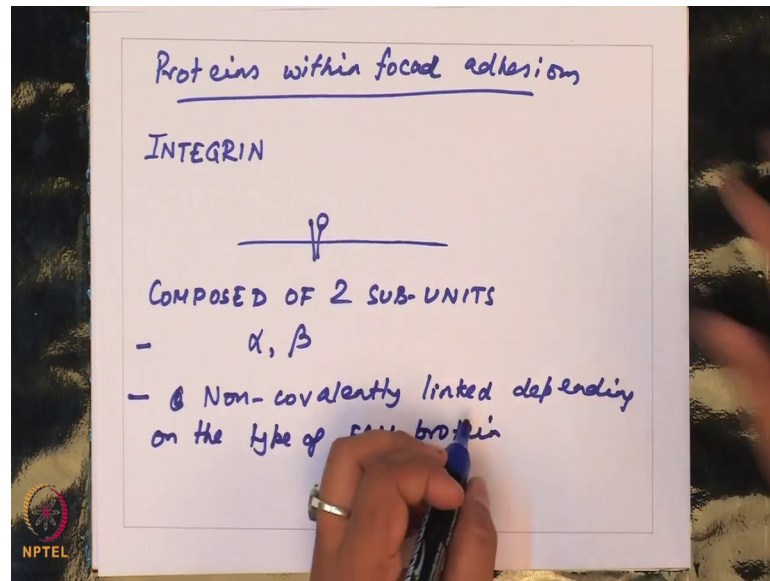 Proteins within focal adhesions
INTEGRIN
COMPOSED OF 2 SUB-UNITS
- α, β
- Non-covalently linked depending
on the type of protein
NPTEL